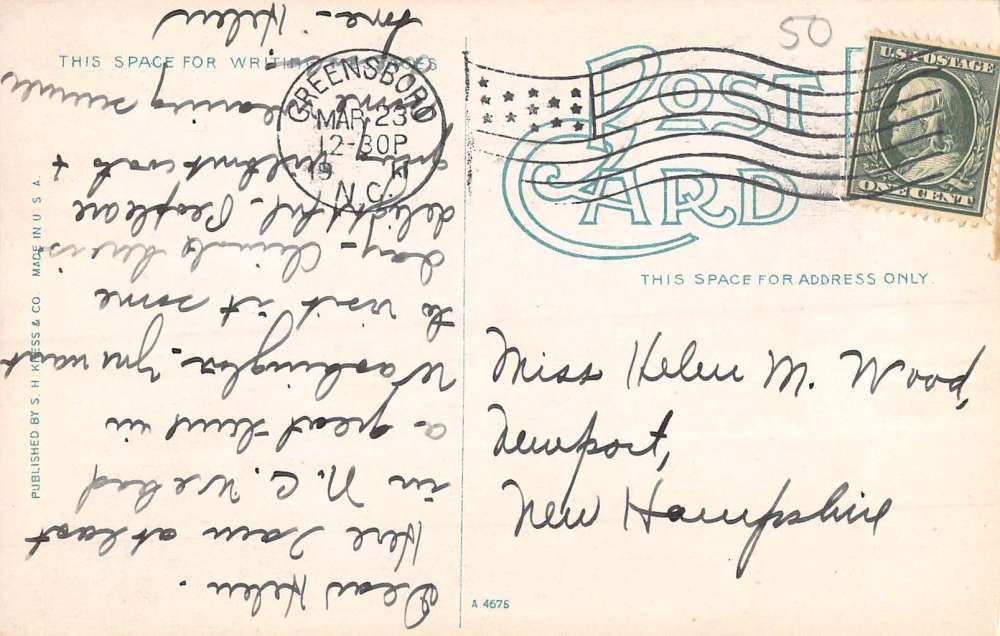 THIS SPACE FOR WRITING MESSAGES
Dear Helen.
Here I am at last
in N.C. We had
a great time in
Washington. You want
to visit it some
day - Climate here is
delightful. People are
going without wraps +
some wearing summer
Helen
PUBLISHED BY S. H. KRESS & CO. MADE IN U.S.A.
GREENSBORO
MAR 23
12-30P
19 11
N.C.
50
POST CARD
U.S. POSTAGE
ONE CENT
THIS SPACE FOR ADDRESS ONLY.
Miss Helen M. Wood,
Newport,
New Hampshire
A 4675